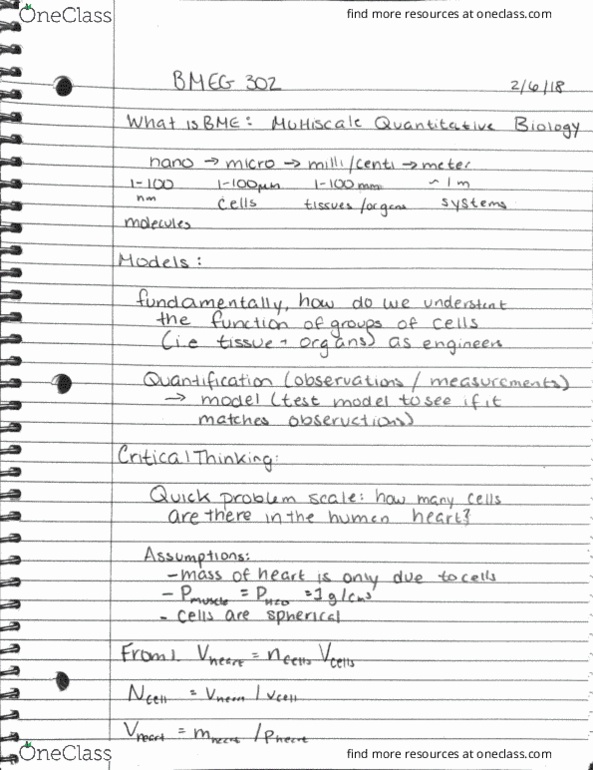 OneClass
find more resources at oneclass.com
BMEG 302
2/6/18
What is BME: Multiscale Quantitative Biology
nano → micro → milli/centi → meter
1-100 1-100μm 1-100 mm ~1m
nm cells tissues/organs systems
molecules
Models:
fundamentally, how do we understand
the function of groups of cells
(i.e tissue + organs) as engineers
Quantification (observations / measurements)
→ model (test model to see if it
matches observations)
Critical Thinking:
Quick problem scale: how many cells
are there in the human heart?
Assumptions:
- mass of heart is only due to cells
- Pmuscle = PH2O = 1g/cm³
- cells are spherical
From 1. Vheart = ncells Vcells
Ncell = Vheart / Vcell
Vheart = mheart / Pheart
OneClass
find more resources at oneclass.com